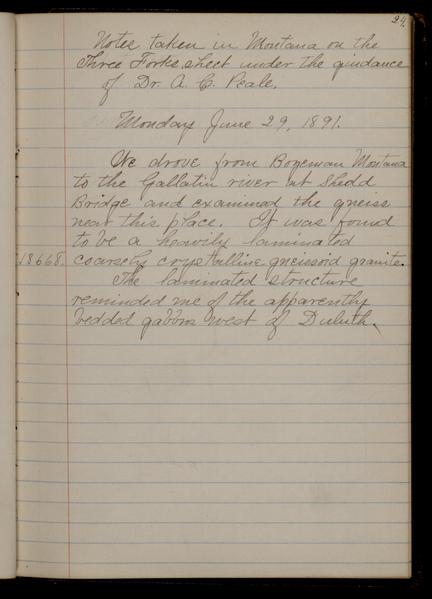 24.
Notes taken in Montana on the
Three Forks sheet under the guidance
of Dr. A. C. Peale.
Monday June 29, 1891.
We drove from Bozeman Montana
to the Gallatin river at Shedd
Bridge and examined the gneiss
near this place. It was found
to be a heavily laminated
18668. coarsely crystalline gneissoid granite.
The laminated structure
reminded me of the apparently
bedded gabbro west of Duluth.